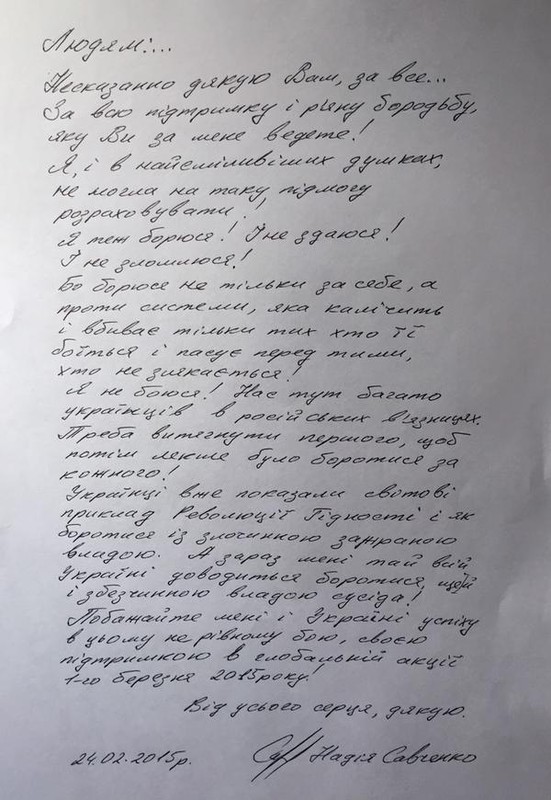 Людям:...
Несказанно дякую Вам, за все...
За всю підтримку і рʼяну бородьбу,
яку Ви за мене ведете!
Я, і в найсміливіших думках,
не могла на таку підмогу
розраховувати!
Я теж борюся! І не здаюся!
І не зломлюся!
Бо борюся не тільки за себе, а
проти системи, яка калічить
і вбиває тільки тих хто її
боїться і пасує перед тими,
хто не злякається!
Я не боюся! Нас тут багато
українців в російських вʼязницях.
Треба витягнути першого, щоб
потім легше було боротися за
кожного!
Українці вже показали світові
приклад Революції Гідності і як
боротися із злочинною зажраною
владою. А зараз мені тай всій
Україні доводиться боротися, щей
і збезчинною владою сусіда!
Побажайте мені і Україні успіху
в цьому не рівному бою, своєю
підтримкою в глобальній акції
1-го березня 2015року!
Від усього серця, дякую.
24.02.2015р. Надія Савченко